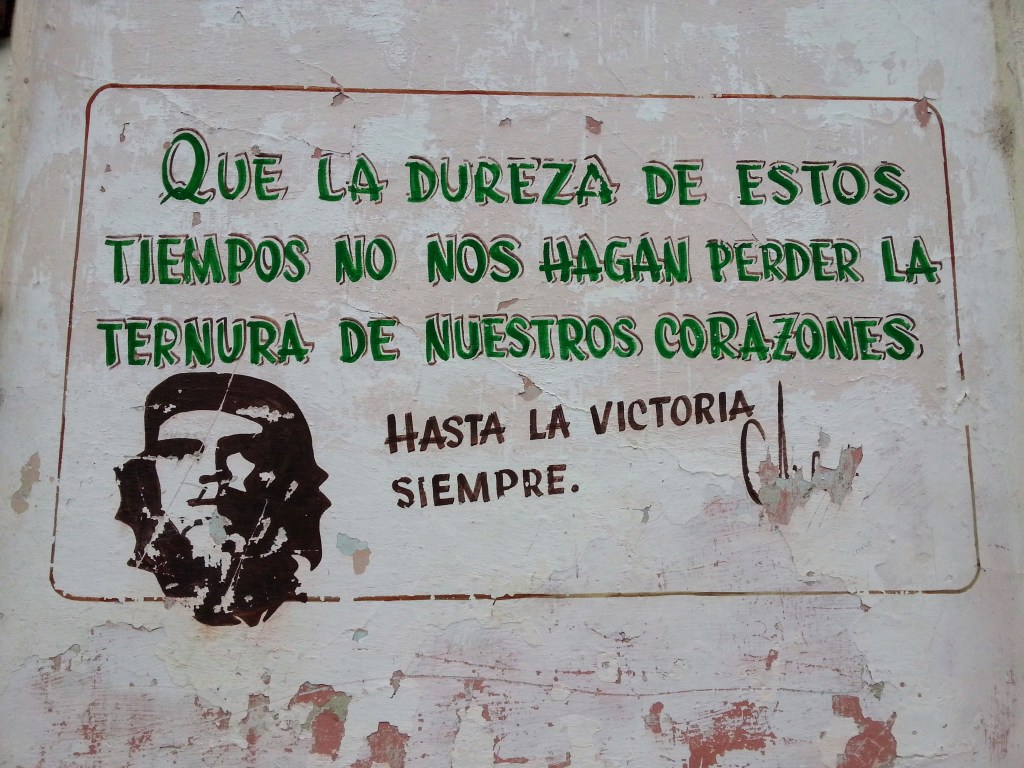 QUE LA DUREZA DE ESTOS
TIEMPOS NO NOS HAGAN PERDER LA
TERNURA DE NUESTROS CORAZONES
HASTA LA VICTORIA
SIEMPRE.